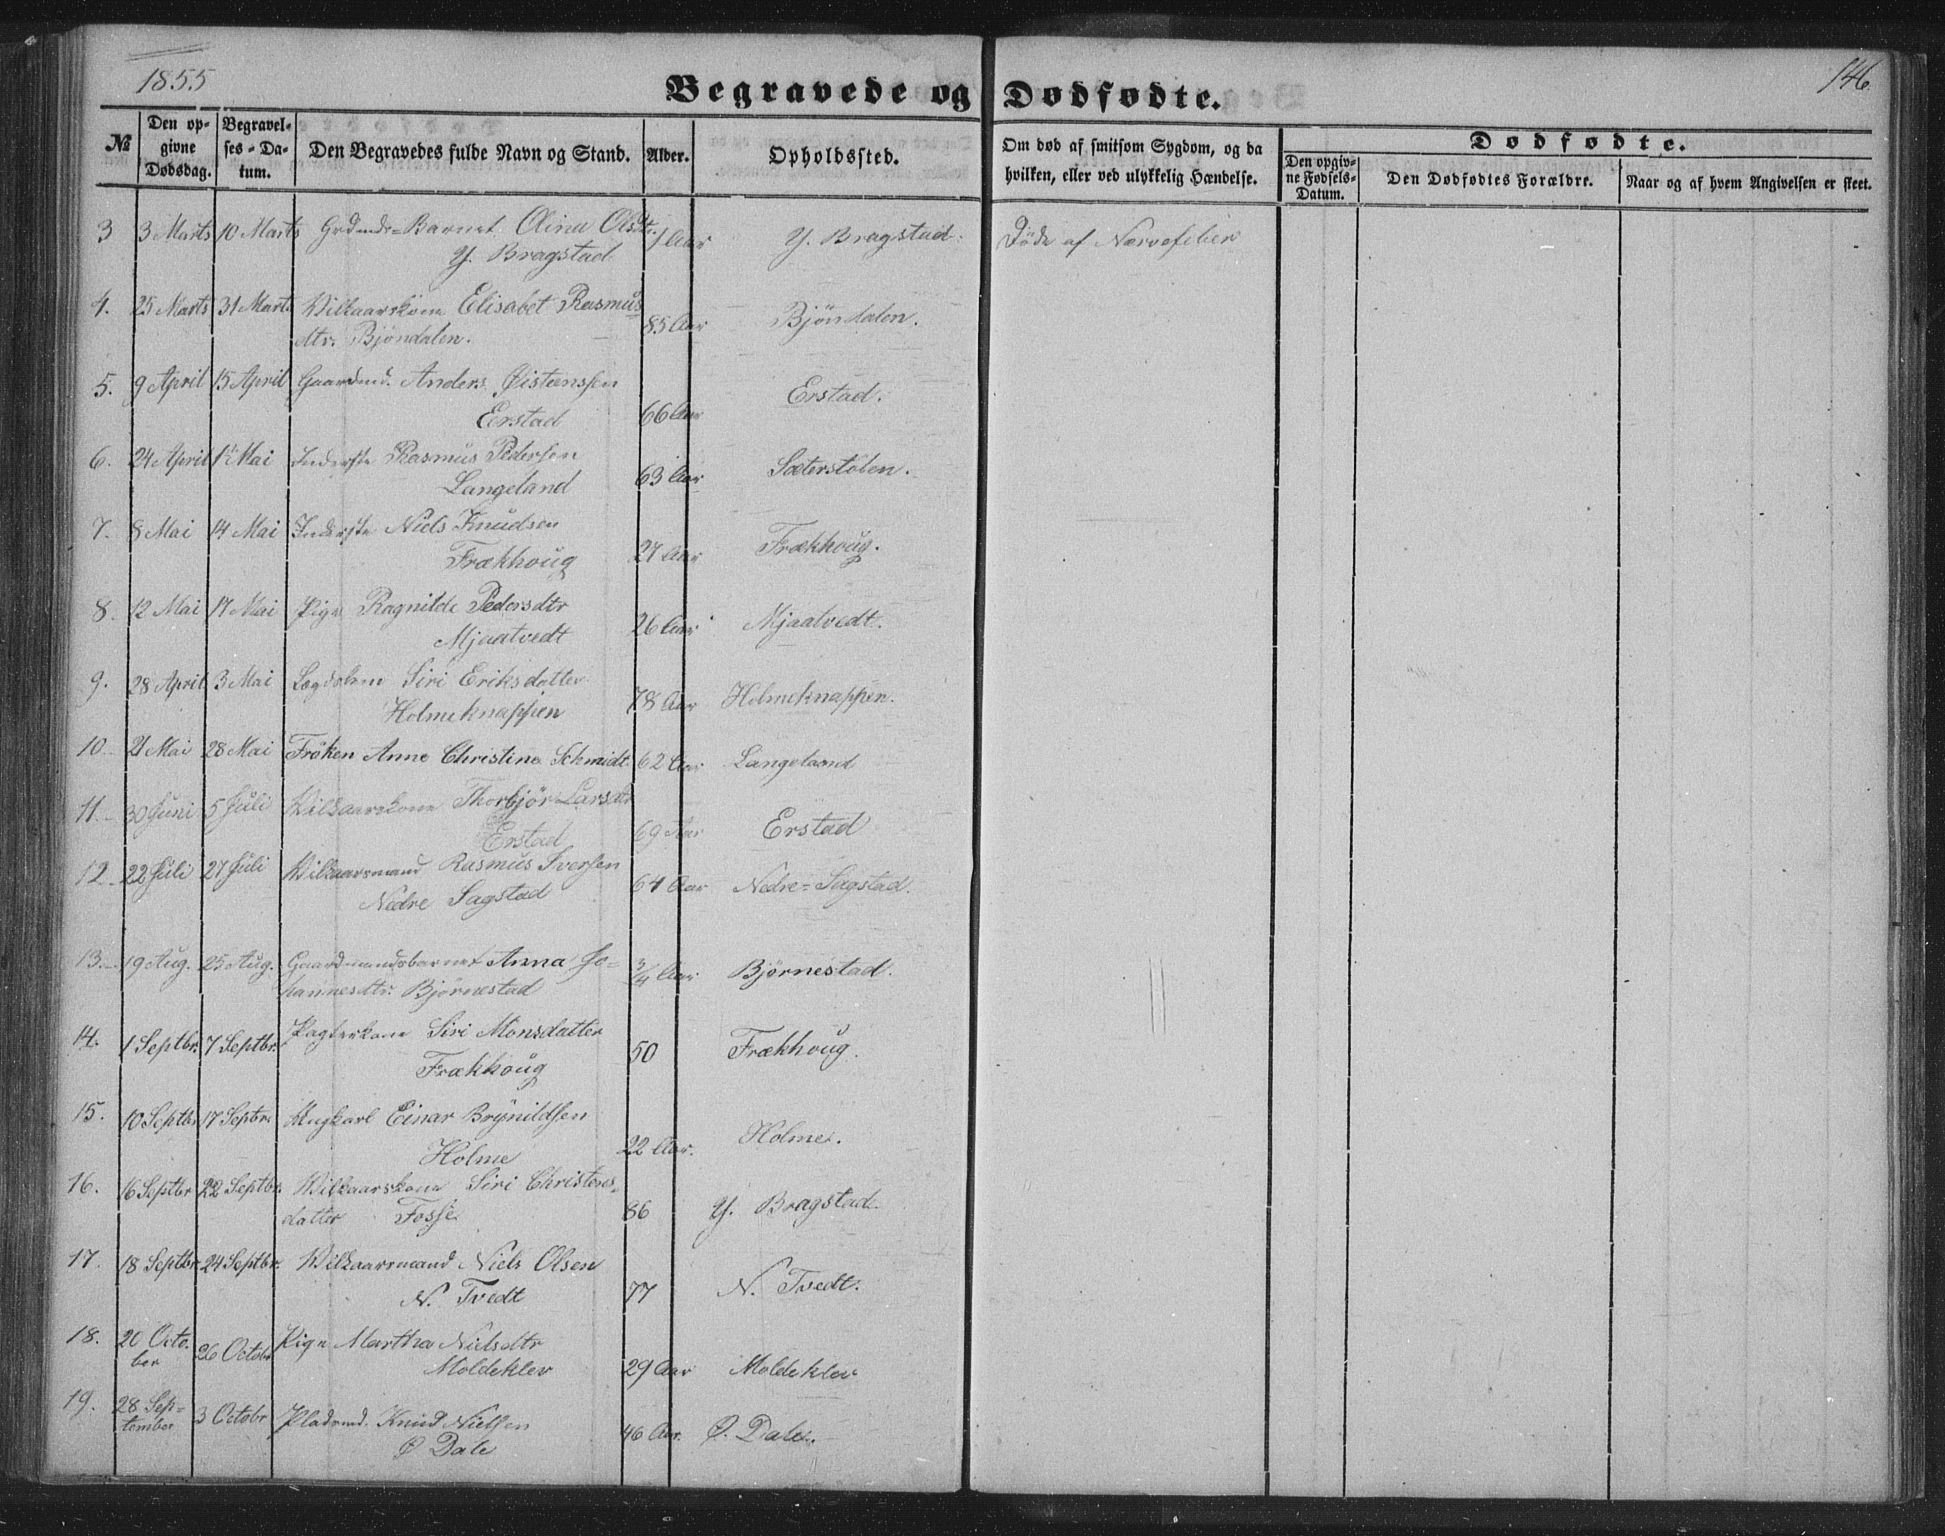 1855
146
Begravede og Dødfødte.
№ Den op-givne Dødsdag. Begravel-ses-Da-tum. Den Begravedes fulde Navn og Stand. Alder. Opholdssted. Om død af smitsom Sygdom, og da hvilken, eller ved ulykkelig Hændelse. Dødfødte.
Den opgiv-ne Fødsels-Datum. Den Dødfødtes Forældre. Naar og af hvem Angivelsen er skeet.
3 3 Marts 10 Marts Grdmds-Barnet Olina Olsdtr. 1 Aar Y. Bragstad. Døde af Nervefeber
Y. Bragstad
4. 25 Marts 31 Marts Vilkaarskone Elisabet Rasmus
dtr. Bjöndalen. 85 Aar Bjöndalen.
5. 9 April 15 April Gaardmd. Anders Øistenssen
Erstad 66 Aar Erstad.
6. 24 April 1 Mai Inderste Rasmus Pedersen
Langeland 63 Aar Sæterstölen.
7. 8 Mai 14 Mai Inderste Niels Knudsen
Frækhoug 27 Aar Frækhoug.
8. 12 Mai 17 Mai Pige Ragnilde Pedersdtr
Mjaatvedt 26 Aar Mjaatvedt.
9. 28 April 3 Mai Lægdslem Siri Eriksdatter
Holmeknappen 78 Aar Holmeknappen.
10. 21 Mai 28 Mai Fröken Anne Christine Schmidt 62 Aar Langeland
11. 30 Juni 5 Juli Vilkaarskone Thorbjör Larsdtr
Erstad 69 Aar Erstad
12. 22 Juli 27 Juli Vilkaarsmand Rasmus Iversen
Nedre Sagstad 64 Aar Nedre-Sagstad.
13. 19 Aug. 25 Aug. Gaardmandsbarnet Anna Jo-
hannesdtr. Björnestad 3/4 Aar Björnestad.
14. 1 Septbr. 7 Septbr. Pagterkone Siri Monsdatter
Frækhoug 50 Frækhoug.
15. 10 Septbr 17 Septbr. Ungkarl Einar Brynildsen
Holme 22 Aar. Holme.
16. 16 Septbr 22 Septbr. Vilkaarskone Siri Christens-
datter Fosse 86 Y. Bragstad.
17. 18 Septbr. 24 Septbr. Vilkaarsmand Niels Olsen
N. Tvedt 77 N. Tvedt.
18. 20 Octo-
ber 26 Octobr Pige Martha Nielsdtr
Moldeklev 29 Aar Moldeklev
19. 28 Sep-
tember 3 Octobr Pladsmd. Knud Nielsen
Ø Dale 46 Aar. Ø. Dale.